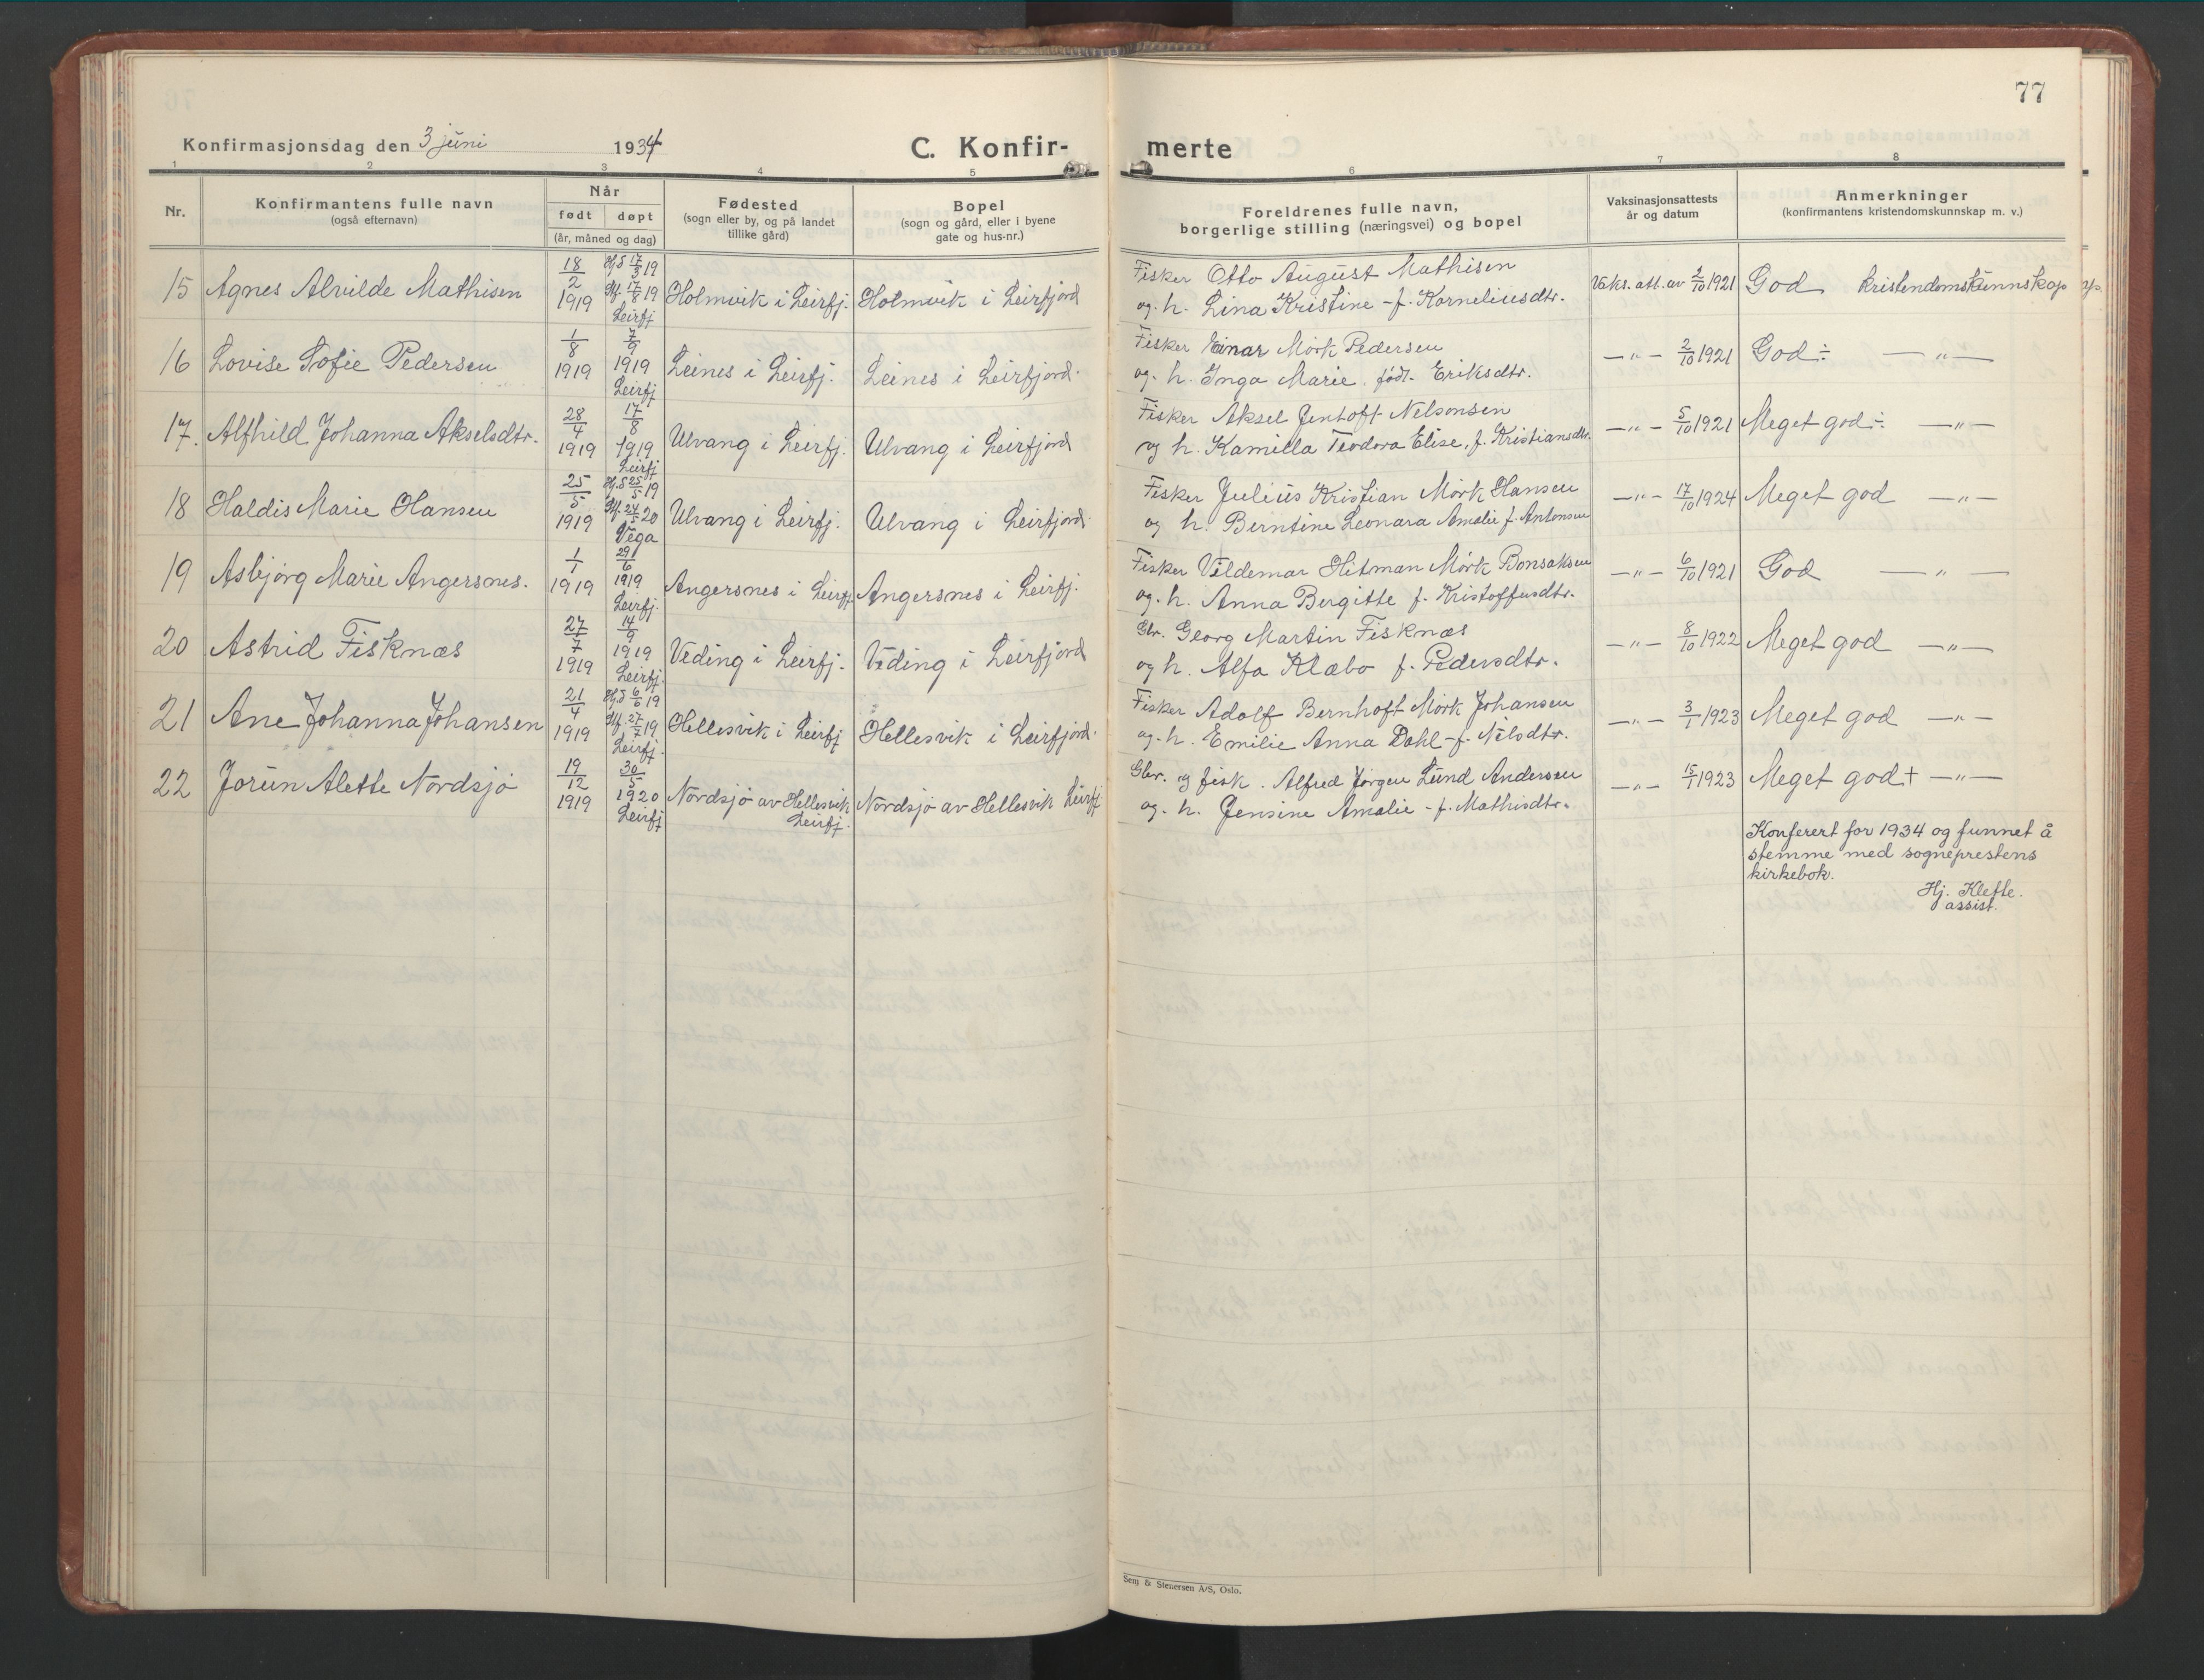 77
Konfirmasjonsdag den 3 juni 1934
C. Konfir-
merte
1 2 3 4 5 6 7 8
Nr.
Konfirmantens fulle navn
(også efternavn)
Når
født døpt
(år, måned og dag)
Fødested
(sogn eller by, og på landet
tillike gård)
Bopel
(sogn og gård, eller i byene
gate og hus-nr.)
Foreldrenes fulle navn,
borgerlige stilling (næringsvei) og bopel
Vaksinasjonsattests
år og datum
Anmerkninger
(konfirmantens kristendomskunnskap m. v.)
15 Agnes Alvilde Mathisen 18/2 1919 Hj.d 17/3 19 Stf. 17/8 19 Leirfj Holmvik i Leirfj. Holmvik i Leirfjord
Fisker Otto August Mathisen
og h. Lina Kristine - f. Korneliusdtr. Vaks. att. av 2/10 1921 God kristendomskunnskap
16 Lovise Sofie Pedersen 1/8 1919 7/9 1919 Leirfj Leines i Leirfj. Leines i Leirfjord.
Fisker Einar Mörk Pedersen
og h. Inga Marie, född. Eriksdtr. —"— 2/10 1921 God ÷ —"—
17. Alfhild Johanna Akselsdtr. 28/4 1919 17/8 1919 Leirfj Ulvang i Leirfj. Ulvang i Leirfjord
Fisker Aksel Jentoft Nelsonsen
og h. Kamilla Teodora Elise, f. Kristiansdtr. —"— 5/10 1921 Meget god ÷ —"—
18 Haldis Marie Hansen 25/5 1919 Hj.d 25/5 19 Stf. 24/5 20 Vega Ulvang i Leirfj. Ulvang i Leirfjord.
Fisker Julius Kristian Mörk Hansen
og h. Berntine Leonara Amalie f. Antonsen —"— 17/10 1924 Meget god —"—
19 Asbjörg Marie Angersnes. 1/1 1919 29/6 1919 Leirfj. Angersnes i Leirfj. Angersnes i Leirfj.
Fisker Valdemar Hitman Mörk Bonsaksen
og h. Anna Bergitte f. Kristoffersdtr. —"— 6/10 1921 God —"—
20 Astrid Fisknæs 27/7 1919 14/9 1919 Leirfj. Veding i Leirfj. Veding i Leirfjord
Gbr. Georg Martin Fisknæs
og h. Alfa Klæbo f. Pedersdtr. —"— 8/10 1922 Meget god —"—
21 Ane Johanna Johansen 21/4 1919 Hj.d 6/6 19 Stf. 27/7 19 Leirfj. Hellesvik i Leirfj Hellesvik i Leirfjord.
Fisker Adolf Bernhoft Mörk Johansen
og h. Emilie Anna Dahl - f. Nilsdtr. —"— 3/1 1923 Meget god —"—
22 Jorun Alette Nordsjö 19/12 1919 30/5 1920 Leirfj Nordsjö av Hellesvik Leirfj. Nordsjö av Hellesvik Leirfj
Gbr. og fisk. Alfred Jörgen Lund Andersen
og h. Jensine Amalie - f. Mathisdtr. —"— 15/1 1923 Meget god + —"—
Konferert for 1934 og funnet å
stemme med sogneprestens
kirkebok.
Hj. Klefte.
assist.
Sem & Stenersen A/S, Oslo.